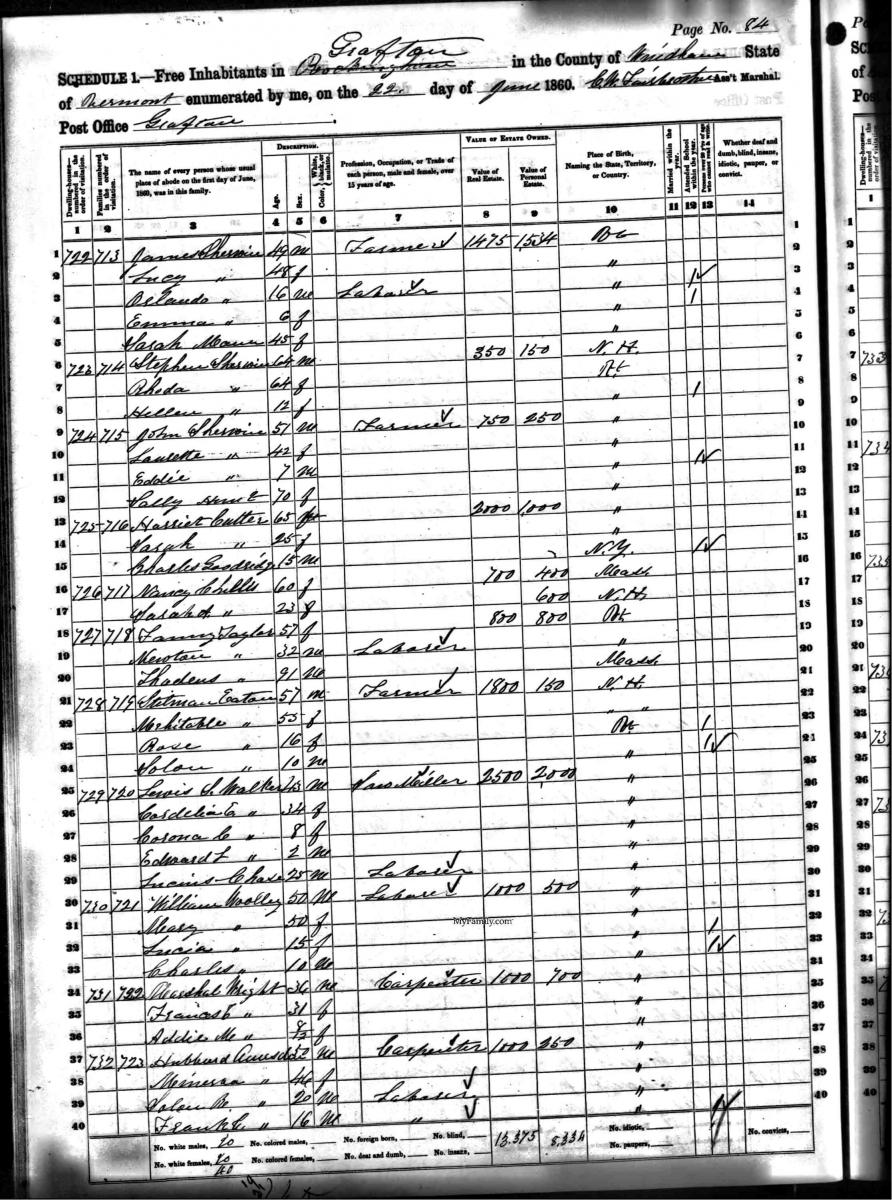 Page No. 84
Grafton
SCHEDULE 1.—Free Inhabitants in Rockingham in the County of Windham State
of Vermont enumerated by me, on the 22 day of June 1860. Ass't Marshal.
Post Office Grafton
DESCRIPTION. VALUE OF ESTATE OWNED.
Dwelling-houses—numbered in the order of visitation. Families numbered in the order of visitation. The name of every person whose usual place of abode on the first day of June, 1860, was in this family. Age. Sex. Color, Profession, Occupation, or Trade of each person, male and female, over 15 years of age. Value of Real Estate. Value of Personal Estate. Place of Birth, Naming the State, Territory, or Country. Married within the year. Attended School within the year. Whether deaf and dumb, blind, insane, idiotic, pauper, or convict.
1 2 3 4 5 6 7 8 9 10 11 12 13 14
1 722 713 James Sherwin 49 m Farmer 1475 1534 Vt 1
2 Lucy " 48 f " 2
3 Orlando " 16 m Laborer " 1 3
4 Emma " 6 f " 1 4
5 Sarah 45 f " 5
6 723 714 Stephen Sherwin 64 m 350 150 N. H. 6
7 Rhoda " 64 f Vt 7
8 Hellen " 12 f " 1 8
9 724 715 John Sherwin 51 m Farmer 750 250 " 9
10 Laurette " 42 f " 10
11 Eddie " 7 m " 1 11
12 Sally 70 f " 12
13 725 716 Harriet Cutter 65 2000 1,000 " 13
14 Sarah " 25 f " 14
15 Charles Goodridge 15 m N.Y. 1 15
16 726 717 Nancy Chellis 60 f 700 400 Mass. 16
17 Sarah A. " 23 f 600 N. H. 17
18 727 718 Fanny Taylor 57 f 800 800 Vt 18
19 Newton " 32 m Laborer " 19
20 Thadeus " 91 m Mass. 20
21 728 719 Stilman Eaton 57 m Farmer 1800 150 N. H. 21
22 Mehitable " 55 f " " 22
23 Rose " 16 f Vt 1 23
24 Solon " 10 m " 1 24
25 729 720 Lewis S. Walker 43 m Saw Miller 2500 2,000 " 25
26 Cordelia E " 34 f " 26
27 Corona C " 8 f " 27
28 Edward L " 2 m " 28
29 Lucius Chase 25 m Laborer " 29
30 730 721 William Woolley 50 m Laborer 1000 500 " 30
31 Mary " 50 f " 31
32 Lucia " 15 f " 1 32
33 Charles " 10 m " 1 33
34 731 722 Marshal Wright 36 m Carpenter 1000 700 " 34
35 Frances " 31 f " 35
36 Addie M " f " 36
37 732 723 Hubbard 52 m Carpenter 1000 250 " 37
38 Minerva " 46 f " 38
39 Solon B. " 20 m Laborer " 39
40 Frank E. " 16 m " " 40
No. white males, 20 No. colored males, No. foreign born, No. blind, 13.375 8.334 No. idiotic,
No. white females, 20 No. colored females, No. deaf and dumb, No. insane, No. paupers, No. convicts,
40
MyFamily.com